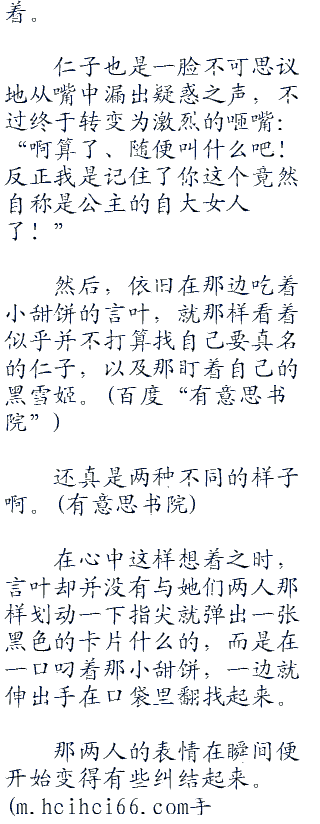 着。
仁子也是一脸不可思议
地从嘴中漏出疑惑之声，不
过终于转变为激烈的咂嘴：
“啊算了、随便叫什么吧！
反正我是记住了你这个竟然
自称是公主的自大女人
了！”
然后，依旧在那边吃着
小甜饼的言叶，就那样看着
似乎并不打算找自己要真名
的仁子，以及那盯着自己的
黑雪姬。(百度“有意思书
院”)
还真是两种不同的样子
啊。(有意思书院)
在心中这样想着之时，
言叶却并没有与她们两人那
样划动一下指尖就弹出一张
黑色的卡片什么的，而是在
一口叼着那小甜饼，一边就
伸出手在口袋里翻找起来。
那两人的表情在瞬间便
开始变得有些纠结起来。
(m.hcihci66.com手